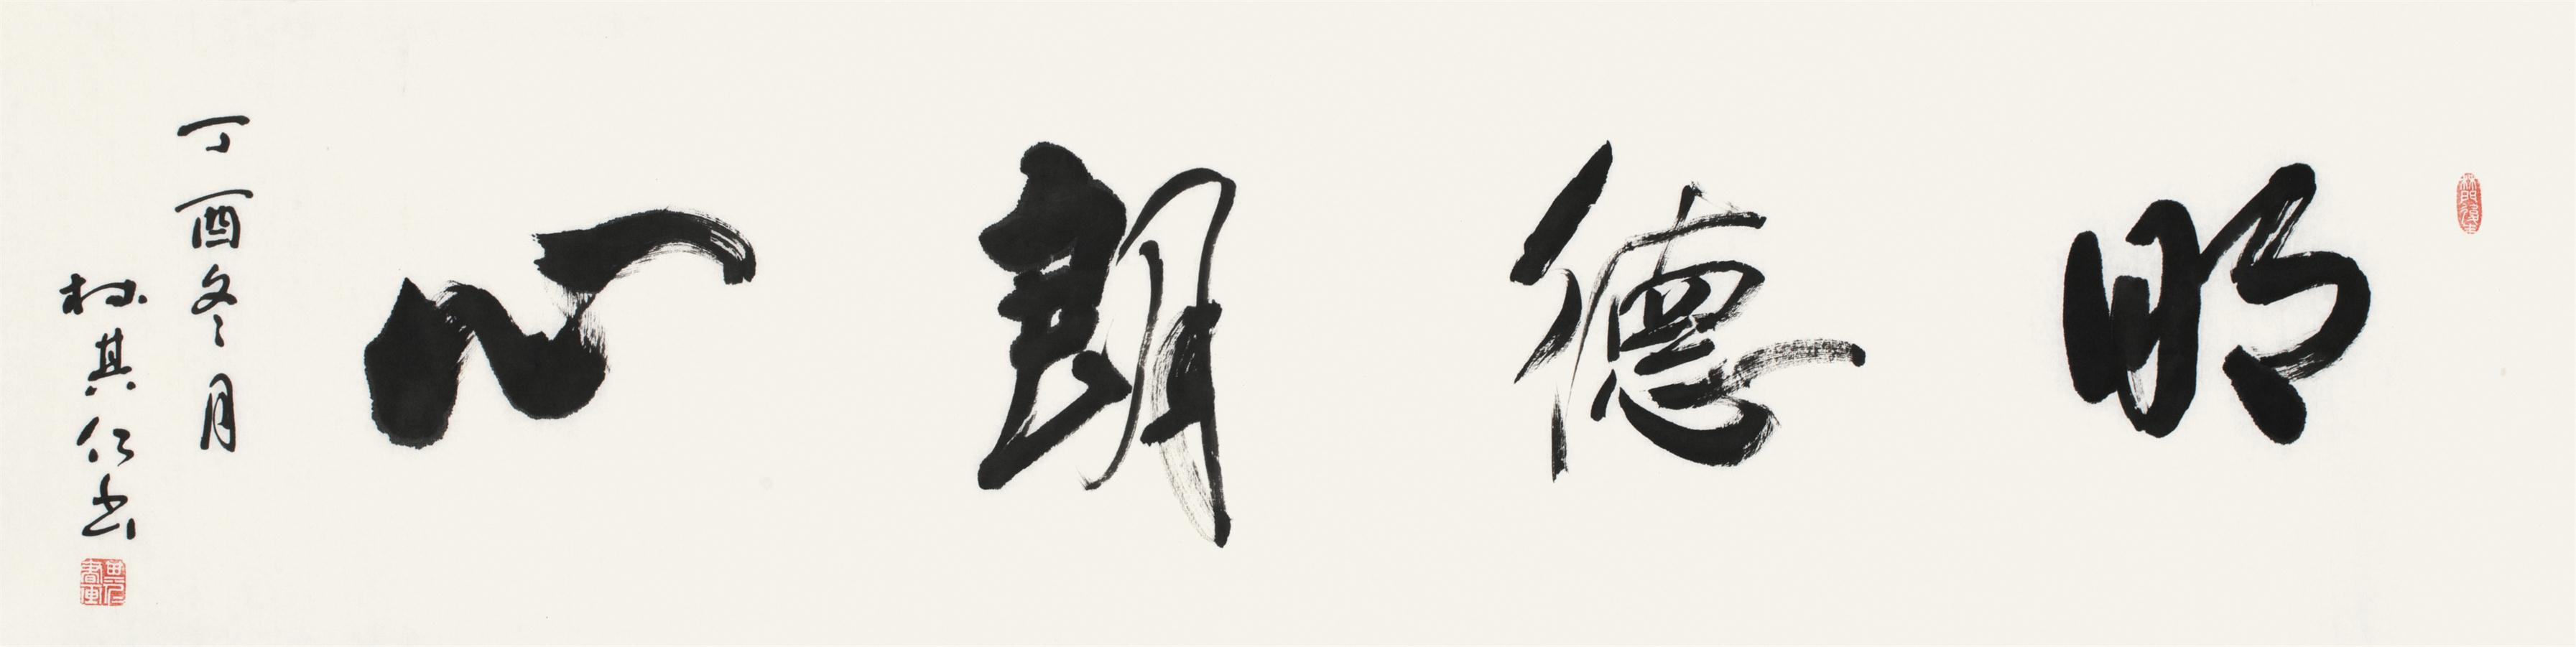 明德朗心
丁酉冬月
林其仁书